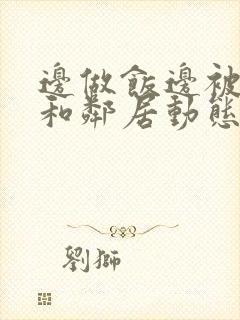 邊做飯邊被
和鄰居動態
劉獅